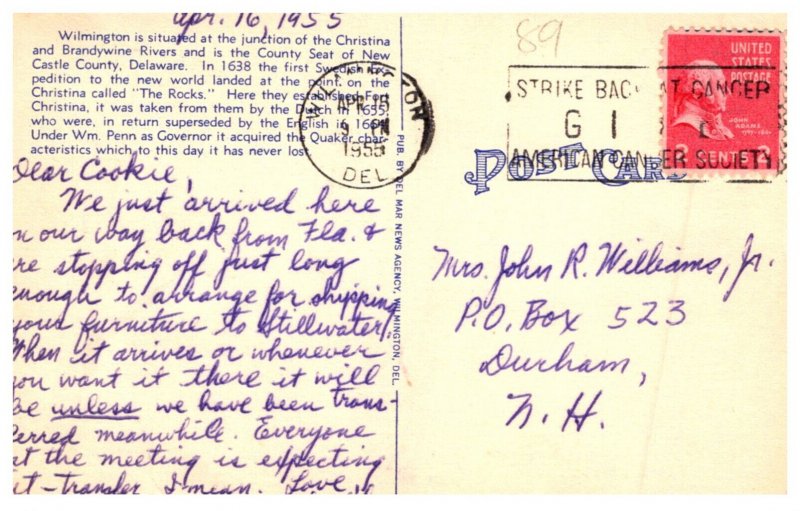 Apr. 16, 1955
Wilmington is situated at the junction of the Christina
and Brandywine Rivers and is the County Seat of New
Castle County, Delaware. In 1638 the first Swedish Ex-
pedition to the new world landed at the point on the
Christina called "The Rocks." Here they established Fort
Christina, it was taken from them by the Dutch in 1655,
who were, in return superseded by the English in 1664.
Under Wm. Penn as Governor it acquired the Quaker char-
acteristics which to this day it has never lost.
Dear Cookie,
We just arrived here
n our way back from Fla. &
re stopping off just long
nough to arrange for shipping
your furniture to Stillwater.
When it arrives or whenever
you want it there it will
be unless we have been trans-
ferred meanwhile. Everyone
at the meeting is expecting
it - transfer I mean. Love,
PUB. BY DEL MAR NEWS AGENCY, WILMINGTON, DEL.
89
WILMINGTON
APR 16
9 PM
1955
DEL
STRIKE BACK AT CANCER
G I
AMERICAN CANCER SOCIETY
UNITED
STATES
POSTAGE
JOHN
ADAMS
POST CARD
Mrs. John R. Williams, Jr.
P.O. Box 523
Durham,
N.H.